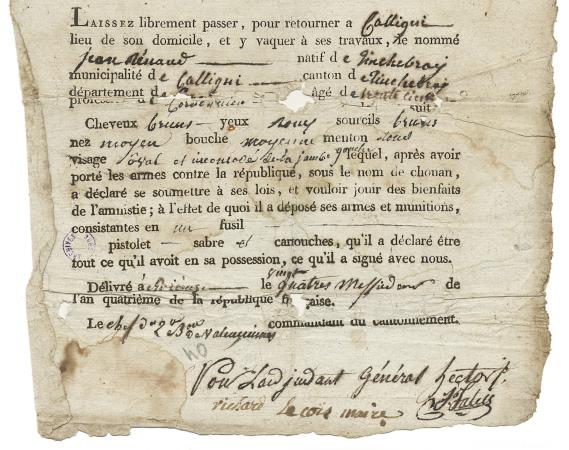 Laissez librement passer, pour retourner a Calligni
lieu de son domicile, et y vaquer à ses travaux, le nommé
jean Renaud natif de tinchebray
municipalité de Calligni canton de tinchebray
département de âgé de trente
profession de suit
Cheveux bruns yeux roux sourcils bruns
nez moyen bouche moyenne menton rond
visage oval et incomodé de la jambe gauche lequel, après avoir
porté les armes contre la république, sous le nom de chouan,
a déclaré se soumettre à ses lois, et vouloir jouir des bienfaits
de l'amnistie; à l'effet de quoi il a déposé ses armes et munitions,
consistantes en un fusil
pistolet — sabre et cartouches, qu'il a déclaré être
tout ce qu'il avoit en sa possession, ce qu'il a signé avec nous.
Délivré à le vingt quatres Messidor de
l'an quatrième de la république française.
Le chef du 2e Bon de Valenciennes commandant du cantonnement.
40
Pour L'adjudant Général hector
richard lecois maire